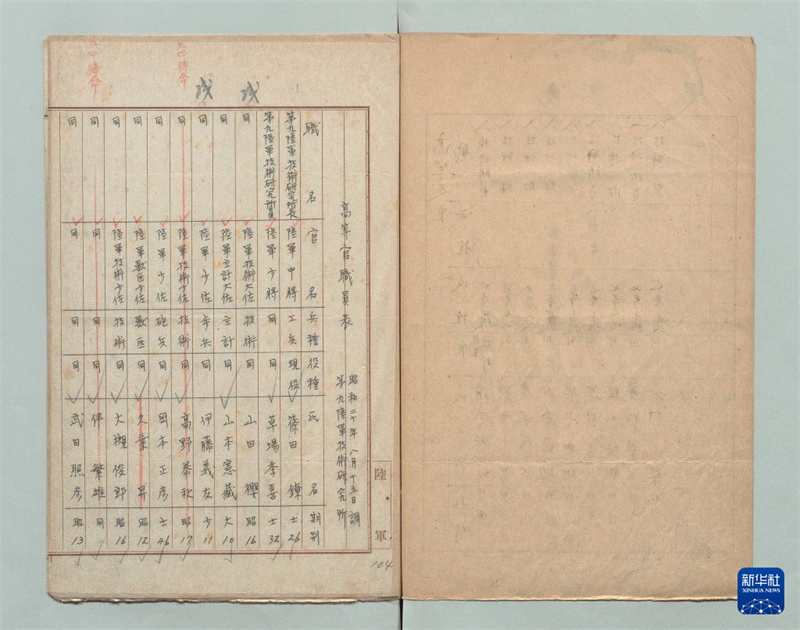 高等官職員表
昭和二十年八月十五日調
第九陸軍技術研究所
陸軍
職名 官名 兵種 役種 氏名 期別
第九陸軍技術研究所長 陸軍中將 工兵 現役 篠田鐐 士26
第九陸軍技術研究所員 陸軍少將 同 同 草場季喜 士32
同 陸軍技術大佐 技術 同 山田櫻 昭16
同 陸軍主計大佐 主計 同 山本憲藏 大10
同 陸軍少佐 歩兵 同 伊藤義友 少11
同 陸軍技術少佐 技術 同 高野泰秋 昭17
同 陸軍少佐 砲兵 同 岡本正彦 士46
同 陸軍獣医少佐 獣医 同 久葉昇 昭12
同 陸軍技術少佐 技術 同 大槻俊郎 昭16
同 同 同 同 伴繁雄 同
同 同 同 同 武田照彦 昭13
104
新华社
XINHUA NEWS